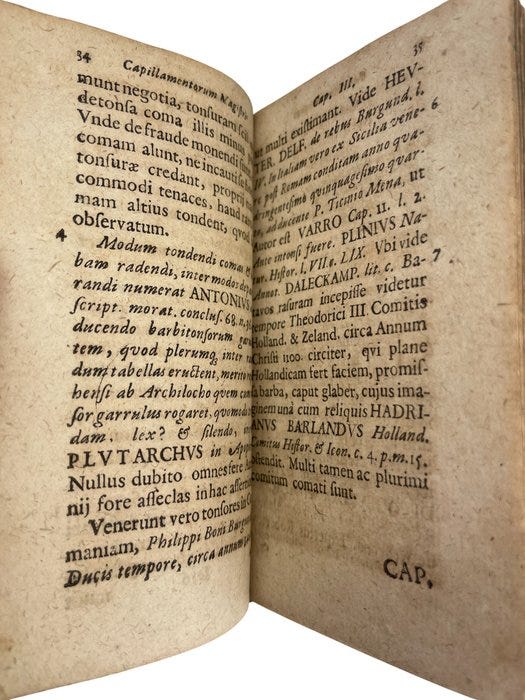 34
Capillamentorum
munt negotia, tonsuram
detonsa coma illis minus
Vnde de fraude monendi sunt
comam alunt, ne incautis
tonsuræ credant, proprii
commodi tenaces, haud
mam altius tondent, quod
observatum.
4
Modum tondendi comas &
bam radendi, inter modos
randi numerat ANTONIUS
script. morat. conclus. 68. n.
ducendo barbitonsorum
tem, quod plerumq; inter
dum tabellas eructent, merito
hensi ab Archilocho quem cum
sor garrulus rogaret, quomodo
dam. lex? & silendo,
PLVTARCHVS in
Nullus dubito omnes fere
nij fore asseclas in hac
Venerunt vero tonsores in
maniam, Philippi Boni
Ducis tempore, circa annum
35
Cap. III.
ut multi existimant. Vide HEV-
TER. DELF. de rebus Burgund. l.
IV. In Italiam vero ex Sicilia vene- 6
re post Romam conditam anno qua-
dringentesimo quinquagesimo quar-
to, ad ducente P. Ticinio Mena, ut
Autor est VARRO Cap. 11. l. 2.
Ante intonsi fuere. PLINIUS Na-
tur. Histor. l. VII. c. LIX. Vbi vide
Annot. DALECKAMP. lit. c. Ba- 7
tavos rasuram incepisse videtur
tempore Theodorici III. Comitis
Holland. & Zeland. circa Annum
Christi 1100. circiter, qvi plane
Hollandicam fert faciem, promis-
sa barba, caput glaber, cujus ima-
ginem unà cum reliquis HADRI-
ANVS BARLANDVS Holland.
Comitus Histor. & Icon. c. 4. p. m. 15.
ostendit. Multi tamen ac plurimi
comitum comati sunt.
CAP.